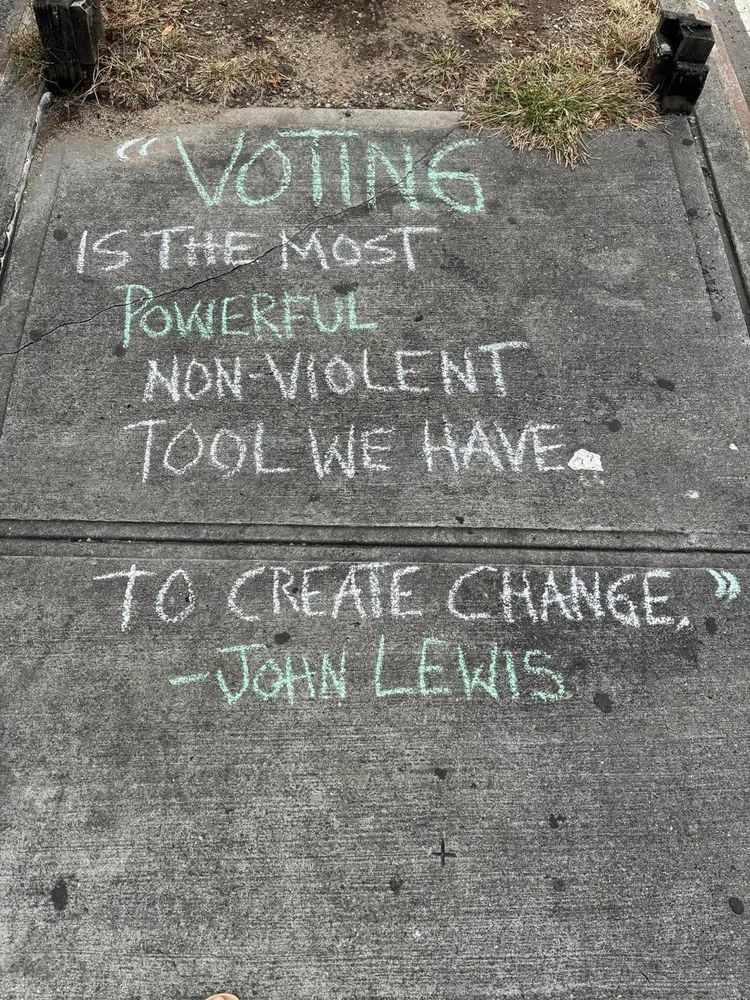 “VOTING
IS THE MOST
POWERFUL
NON-VIOLENT
TOOL WE HAVE.
TO CREATE CHANGE.”
-JOHN LEWIS